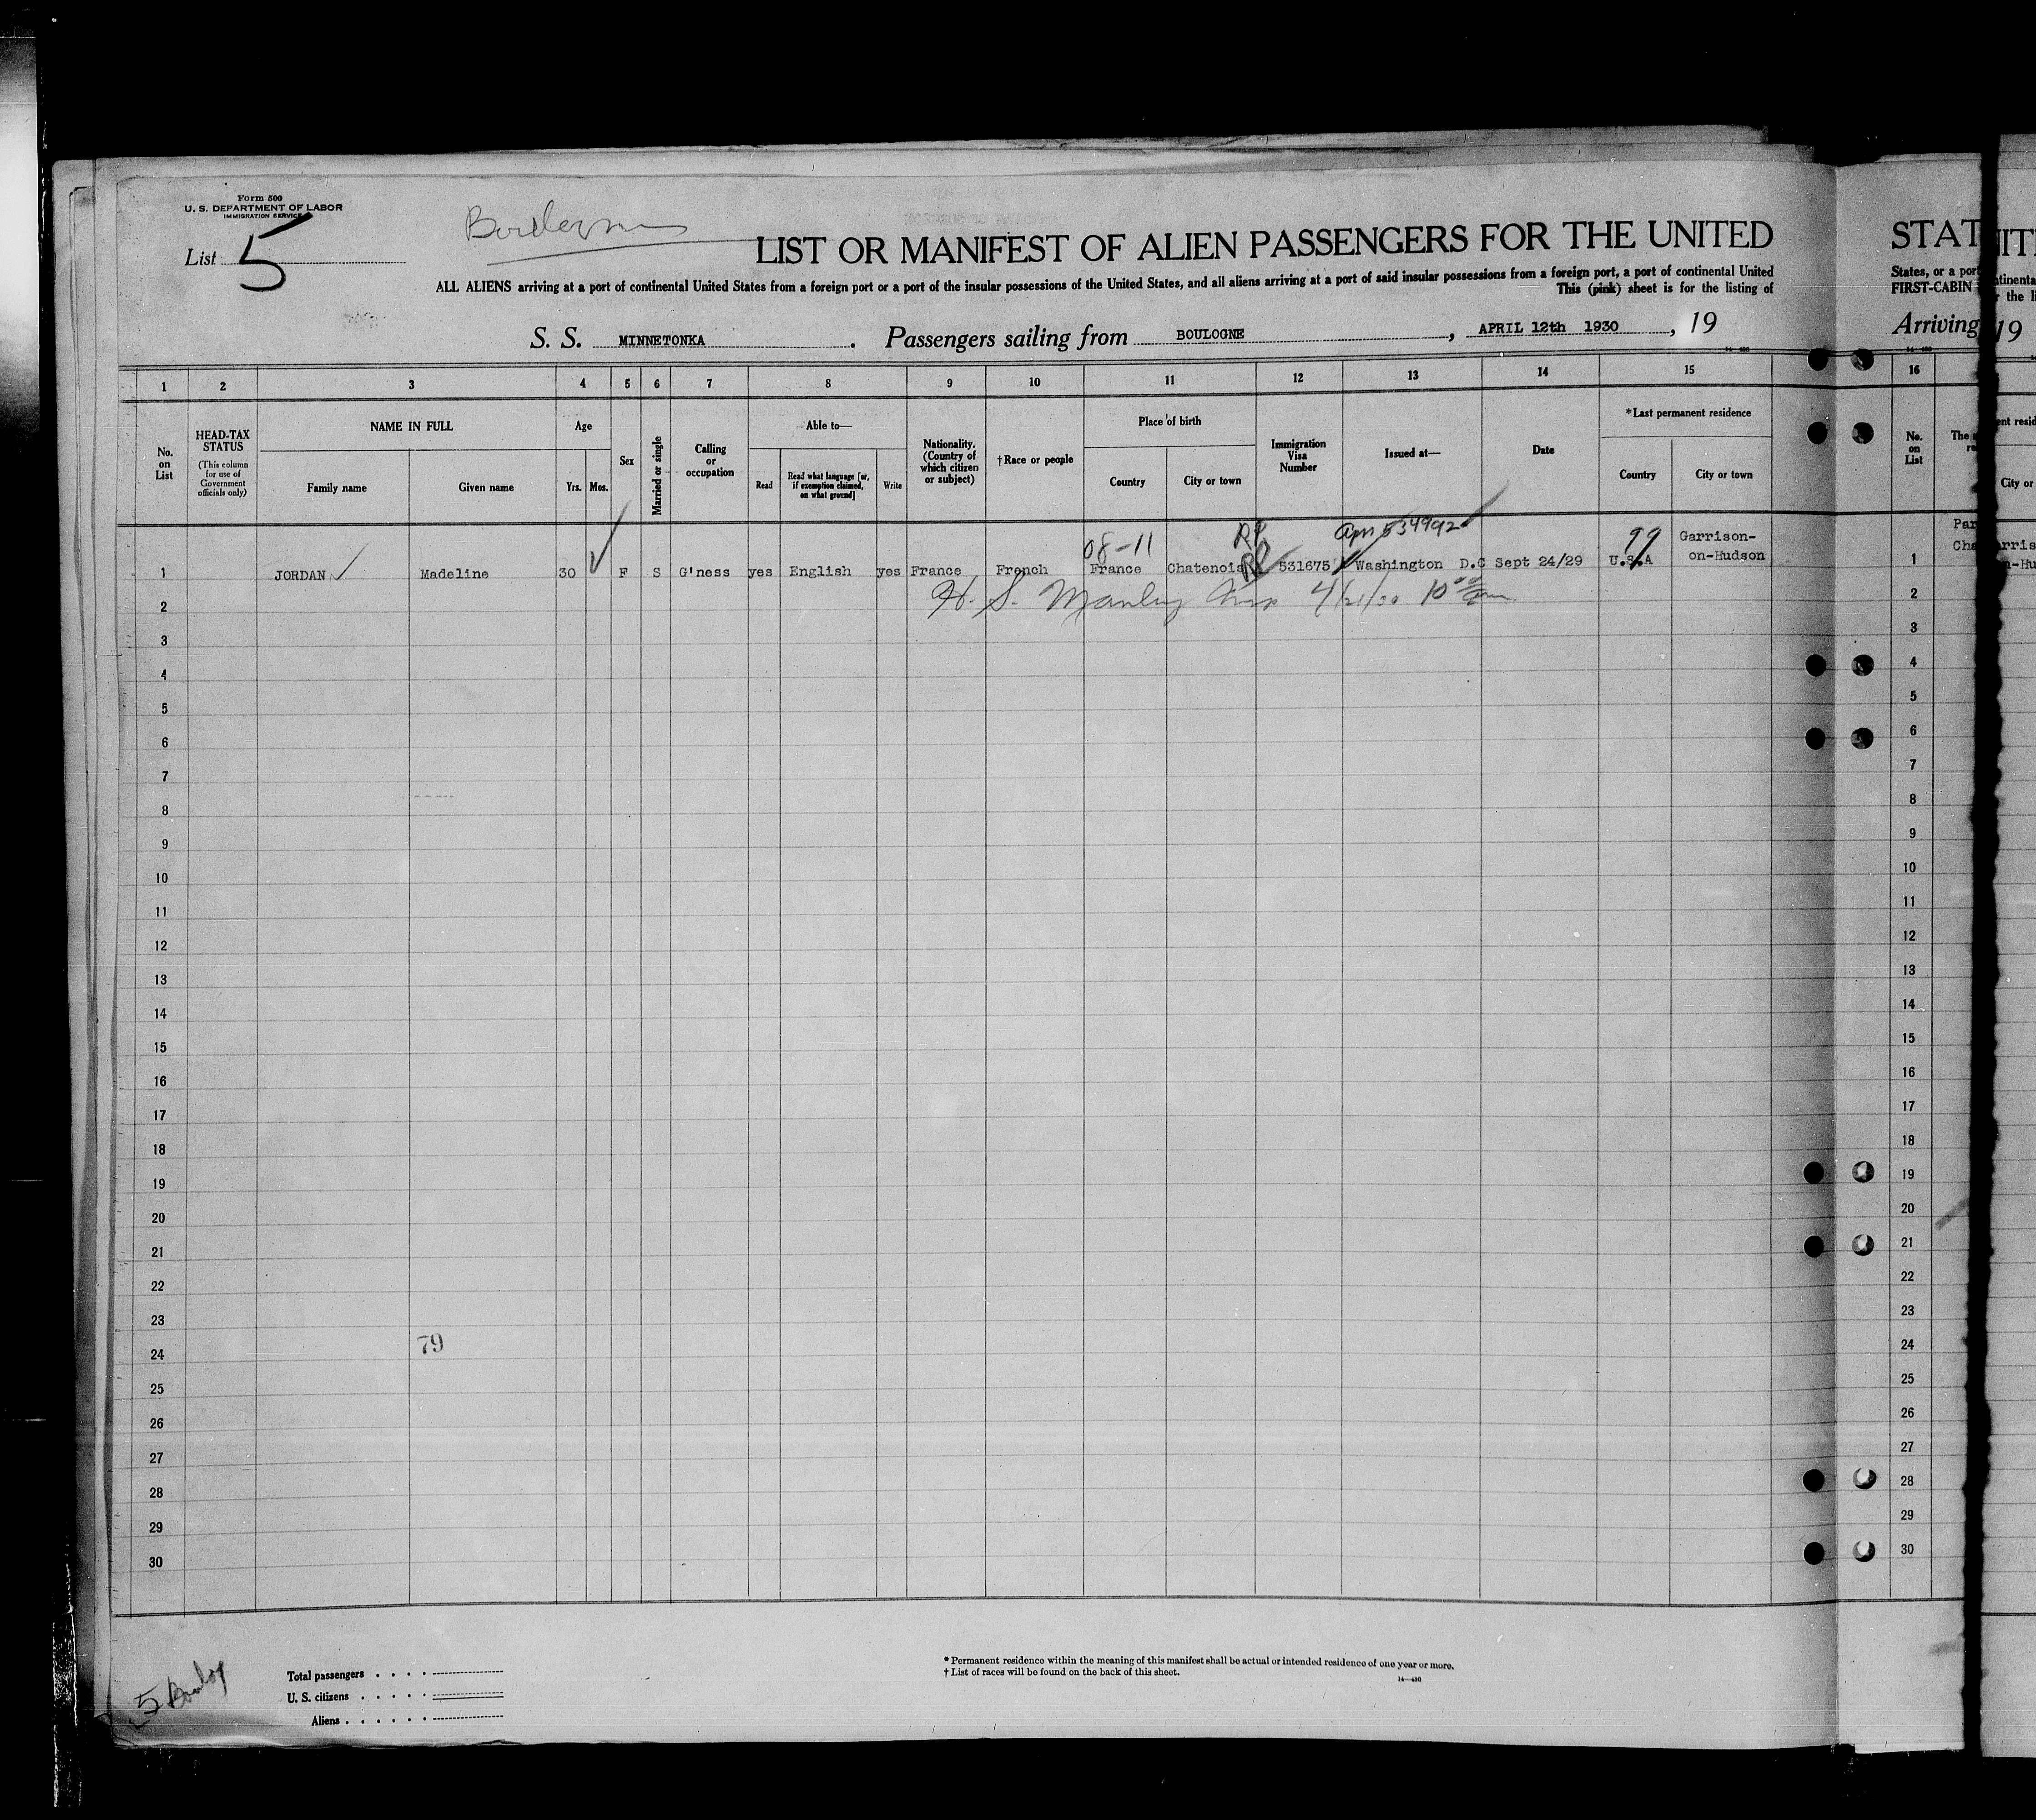 Form 500
U. S. DEPARTMENT OF LABOR
IMMIGRATION SERVICE
List 5
LIST OR MANIFEST OF ALIEN PASSENGERS FOR THE UNITED
ALL ALIENS arriving at a port of continental United States from a foreign port or a port of the insular possessions of the United States, and all aliens arriving at a port of said insular possessions from a foreign port, a port of continental United
This (pink) sheet is for the listing of
S. S. MINNETONKA. Passengers sailing from BOULOGNE, APRIL 12th 1930, 19
1 2 3 4 5 6 7 8 9 10 11 12 13 14 15
No. on List
HEAD-TAX STATUS
(This column for use of Government officials only)
NAME IN FULL
Family name
Given name
Age
Yrs. Mos.
Sex
Married or single
Calling or occupation
Able to—
Read
Read what language [or, if exemption claimed, on what ground]
Write
Nationality. (Country of which citizen or subject)
†Race or people
Place of birth
Country
City or town
Immigration Visa Number
Issued at—
Date
*Last permanent residence
Country
City or town
08-11 534992 99 Garrison-
1 JORDAN Madeline 30 F S G'ness yes English yes France French France Chatenois 531675 Washington D.C Sept 24/29 U.S.A on-Hudson
2 H. S. Manley 4/21/30 10
3
4
5
6
7
8
9
10
11
12
13
14
15
16
17
18
19
20
21
22
23
24 79
25
26
27
28
29
30
Total passengers . . . .
U. S. citizens . . . . .
Aliens . . . . . .
* Permanent residence within the meaning of this manifest shall be actual or intended residence of one year or more.
† List of races will be found on the back of this sheet.
14—430
5
STAT
States, or a port
FIRST-CABIN
Arriving
16
No. on List
The
1
2
3
4
5
6
7
8
9
10
11
12
13
14
15
16
17
18
19
20
21
22
23
24
25
26
27
28
29
30
19
City or